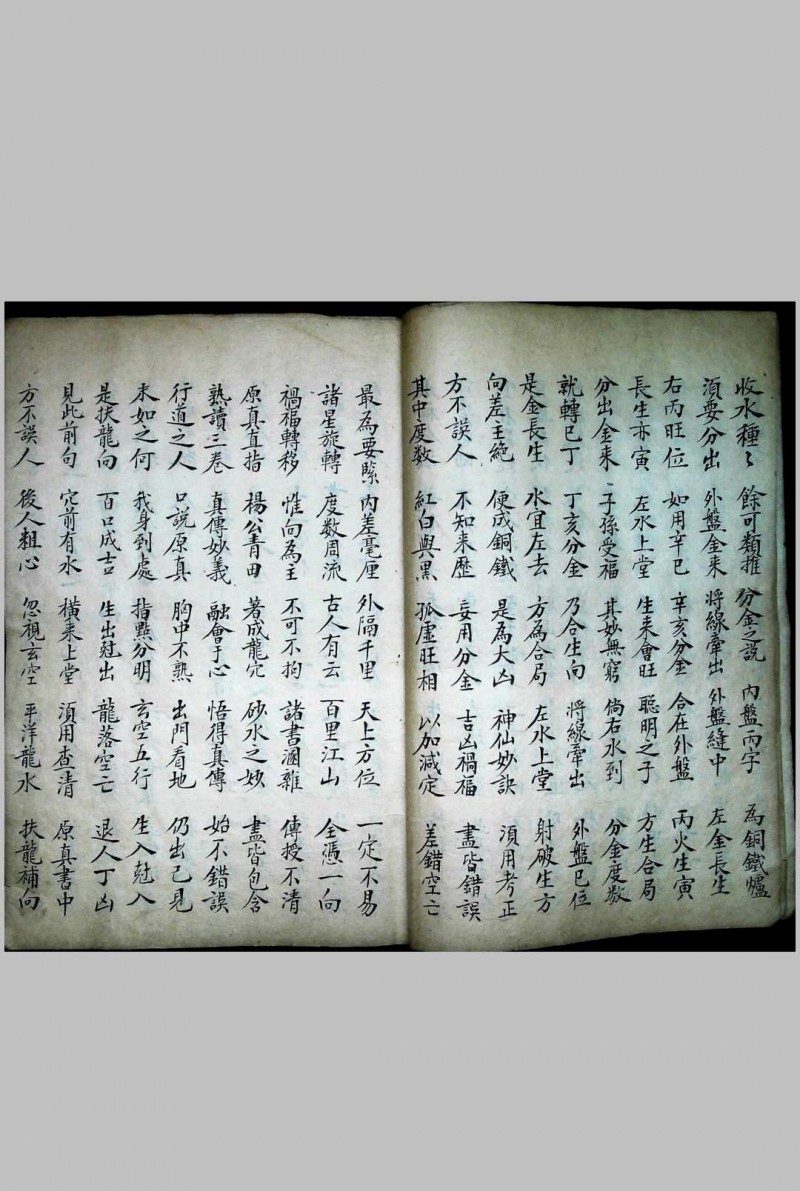 收水種〻 餘可類推 分金之說 內盤丙字 為銅鐵爐
須要分出 外盤金来 將線牽出 外盤縫中 左金長生
右丙旺位 如用辛巳 辛亥分金 合在外盤 丙火生寅
長生亦寅 左水上堂 生来會旺 聪明之子 方生合局
分出金来 子孫受福 其妙無窮 倘右水到 分金度数
就轉巳丁 丁亥分金 乃合生向 將線牽出 外盤巳位
是金長生 水宜左去 方為合局 左水上堂 射破生方
向差主絶 便成銅鐵 是為大凶 神仙妙訣 須用考正
方不誤人 不知来歷 妄用分金 吉凶禍福 盡皆錯誤
其中度数 紅白與黑 孤虛旺相 以加減定 差錯空亡
最為要緊 內差毫厘 外隔千里 天上方位 一定不易
諸星旋轉 度数周流 古人有云 百里江山 全憑一向
禍福轉移 惟向為主 不可不拘 諸書溷雜 傳授不清
原真直指 楊公青田 著成龍穴 砂水之妙 盡皆包含
熟讀三卷 真傳妙義 融會于心 悟得真傳 始不錯誤
行道之人 口說原真 胸中不熟 出門看地 仍出己見
未如之何 我身到處 指點分明 玄空五行 生入尅入
是扶龍向 百口成吉 生出尅出 龍落空亡 退人丁凶
見此前句 穴前有水 橫来上堂 須用查清 原真書中
方不誤人 後人粗心 忽視玄空 平洋龍水 扶龍補向